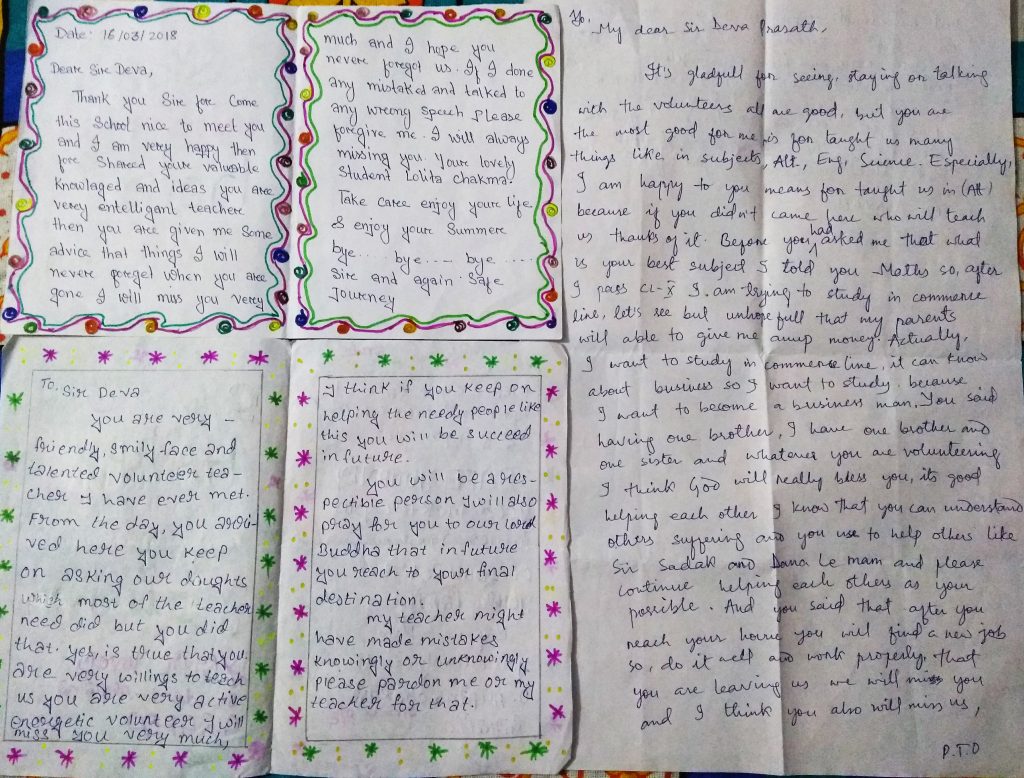 Date: 16/03/2018
Deare Sire Deva,
Thank you Sire fore Come
this School nice to meet you
and I am very happy then
fore Shared youre valuable
Knowlaged and ideas you aree
verey entelligant teachere
then you aree given me Some
advice that things I will
nevere foregel when you aree
gone I will miss you verey
much and I hope you
nevere foregot us. If I done
any mistaked and talked to
any wrong speech please
foregive me. I will always
missing you. Youre lovely
Student Lolita chakma.
Take caree enjoy youre life
& enjoy youre Summere
bye... bye.... bye.....
Sire and again safe
Journey
To. Sir Deva
you are very -
friendly, smily face and
talented volunteer tea-
cher I have ever met.
From the day, you arri-
ved here you keep
on asking our doughts
which most of the teacher
need did but you did
that. yes, is true that you
are very willings to teach
us you are very active
energetic volunteer I will
miss you very much,
I think if you keep on
helping the needy people like
this you will be succeed
in future.
you will be a res-
pectible person I will also
pray for you to our lord
Buddha that in future
you reach to your final
destination.
my teacher might
have made mistakes
knowingly or unknowingly
please pardon me or my
teacher for that.
To,
My dear Sir Deva Prasath,
It's gladfull for seeing, staying or talking
with the volunteers all are good, but you are
the most good for me is for taught us many
things like in subjects, Alt., Eng, Science. Especially,
I am happy to you means for taught us in (Alt)
because if you didn't came here who will teach
us thanks of it. Before you had asked me that what
is your best subject I told you Maths so, after
I pass CL-X I am trying to study in commerce
line, let's see but unhope full that my parents
will able to give me money. Actually,
I want to study in commerce line, it can know
about business so I want to study. because
I want to become a business man. You said
having one brother, I have one brother and
one sister and whatever you are volunteering
I think God will really bless you, its good
helping each other I know that you can understand
others suffering and you use to help others like
Sir Sadak and Dana Le mam and please
continue helping each others as your
possible. And you said that after you
reach your home you will find a new job
so, do it well and work properly. that
you are leaving us we will miss you
and I think you also will miss us,
P.T.O